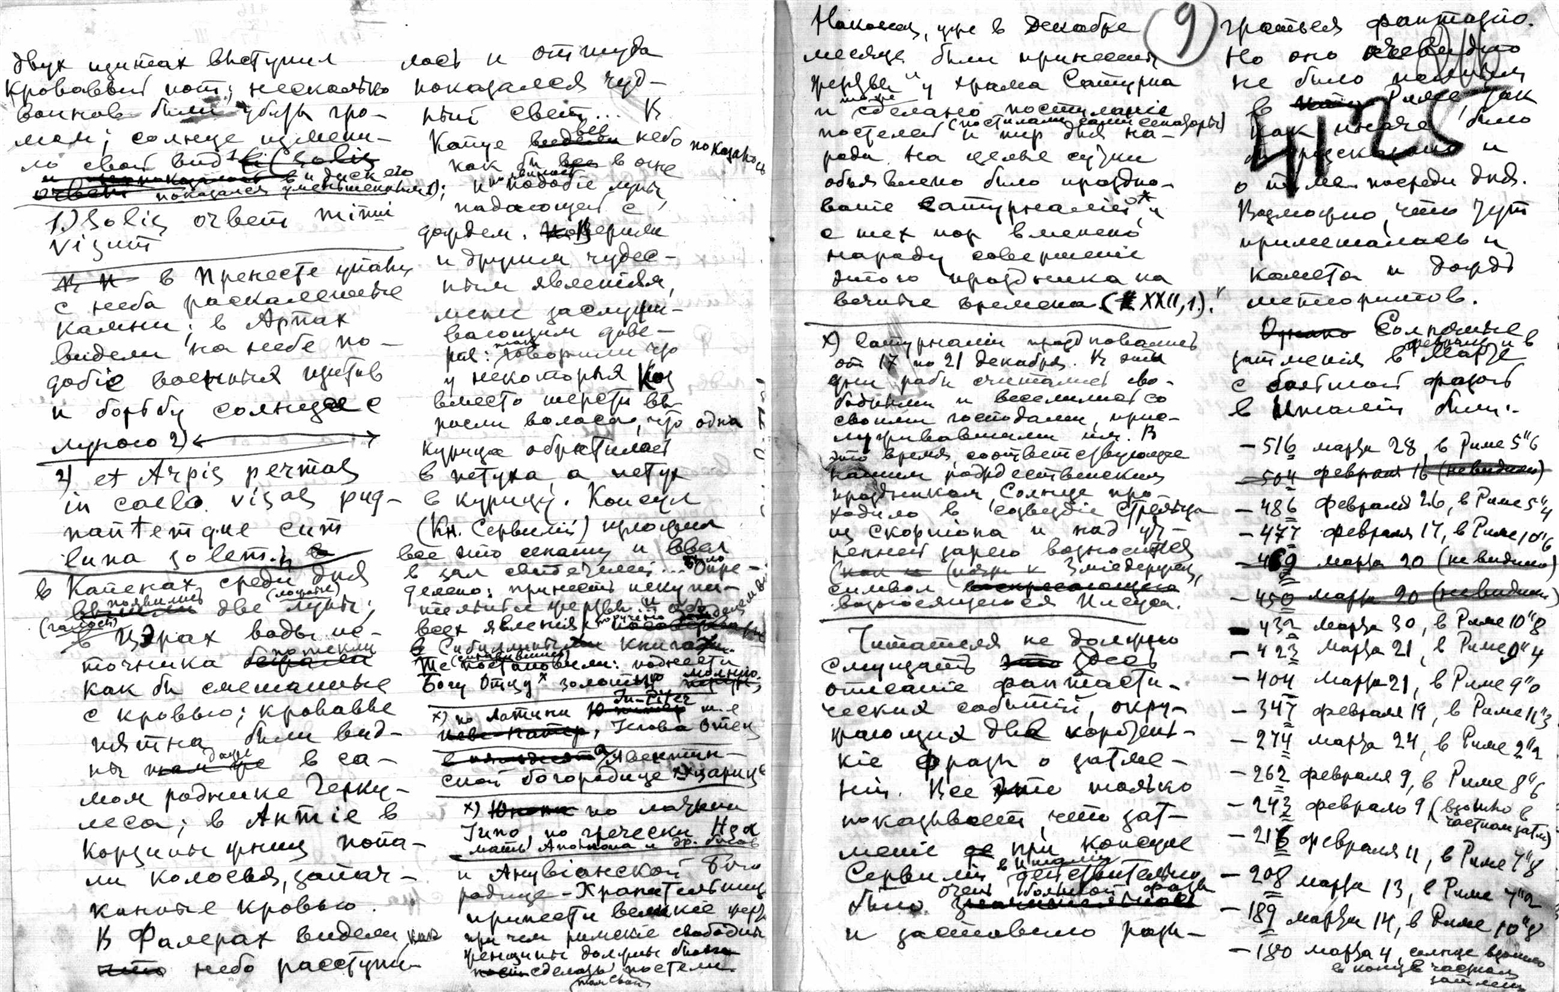 двух щитах выступил
кровавый пот; несколько
воинов были убиты гро-
мом; солнце измени-
ло свой вид
и диск его
показался уменьшенным 1);
1) Solis orbem minui
visum
в Пренесте упали
с неба раскаленные
камни; в Арпах
видели на небе по-
добие военных щитов
и борьбу солнца с
луною 2)
2) et Arpis permas
in caelo visas pug-
nantemque cum
luna solem.
в Капенах среди дня
появились две луны;
в Цэрах воды ис-
точника потекли
как бы смешанные
с кровью; кровавые
пятна были вид-
ны даже в са-
мом роднике Герку-
леса; в Антіе в
корзины жниц попа-
ли колосья, запач-
канные кровью.
В Фалерах видели, как
небо расступи-
лось и оттуда
показался чуд-
ный свет... В
Капуе небо показалось
как бы все в огне
и подобие луны
падающей с
дождем. Верили
и другим чудес-
ным явленіям,
менее заслужи-
вающим дове-
рія: говорили что
у некоторых коз
вместо шерсти вы-
росли волоса, что одна
курица обратилась
в петуха, а петух
в курицу. Консул
(Кн. Сервилій) изложил
все это сенату и ввел
в зал свидетелей... Было опре-
делено: принести искупи-
тельные жертвы
всех явленія
Сибиллины книги.
Те постановили: поднести
Богу Отцу x золотую молнію
x) по латыни Ju-Piter т.е
Іегова Отец
Авентин-
ской богородице x) царице
x) по латыни
Juno, по гречески Hρα
мать Аполлона и др. богов
и Ланувіанской Бого
родице-Хранительнице
принести великіе жертв
при чем римскіе свободные
женщины должны были
сделать постели
Наконец, уже в Декабре
месяце были принесены
жертвы у храма Сатурна
и сделано постиланіе
постелей (постилали сами сенаторы)
и пир для на-
рода. На целые сутки
объявлено было праздно-
ваніе Сатурналій x), и
с тех пор вменено
народу совершеніе
этого праздника на
вечные времена (XXII,1).
9
x) Сатурналіи праздновались
от 17 по 21 декабря. В эти
дни рабы считались сво-
бодными и веселились со
своими господами, прис-
луживавшими им. В
это время соответствующее
нашим рождественским
праздникам, Солнце про-
ходило в созвездіе Стрельца
из Скорпіона и над ут-
ренней зарею возносился
Змиедержец,
символ
возносящегося Иисуса.
Читателя не должно
смущать здесь
описаніе фантасти-
ческих событій, окру-
жающих две коротень-
кіе фразы о затме-
ніи. Все это только
показывает, что зат-
меніе при консуле
Сервиліи в Италии действительно
было очень большой фазы
и заставило разы-
граться фантазію.
Но оно очевидно
не было полным
в Риме, так
как иначе было
бы рассказано и
о тьме посреди дня.
Возможно, что тут
примешалась и
комета и дождь
метеоритов.
4125
Солнечные
затменія в феврале и в Марте
с большой фазой
в Италіи были:
– 516 марта 28, в Риме 5"6
– 504 февраля 16 (невидим)
– 486 февраля 26, в Риме 5"4
– 477 февраля 17, в Риме 10"6
– 469 марта 20 (невидимо)
– 450 марта 20 (невидим)
– 432 марта 30, в Риме 10"8
– 423 марта 21, в Риме 9"4
– 404 марта 21, в Риме 9"0
– 347 февраля 19, в Риме 11"3
– 274 марта 24, в Риме 2"2
– 262 февраля 9, в Риме 8"6
– 243 февраля 9 (взошло в
частном затм)
– 216 февраля 11, в Риме 7"8
– 208 марта 13, в Риме 7"2
– 189 марта 14, в Риме 10"8
– 180 марта 4, солнце взошло
в конце частном
затмен